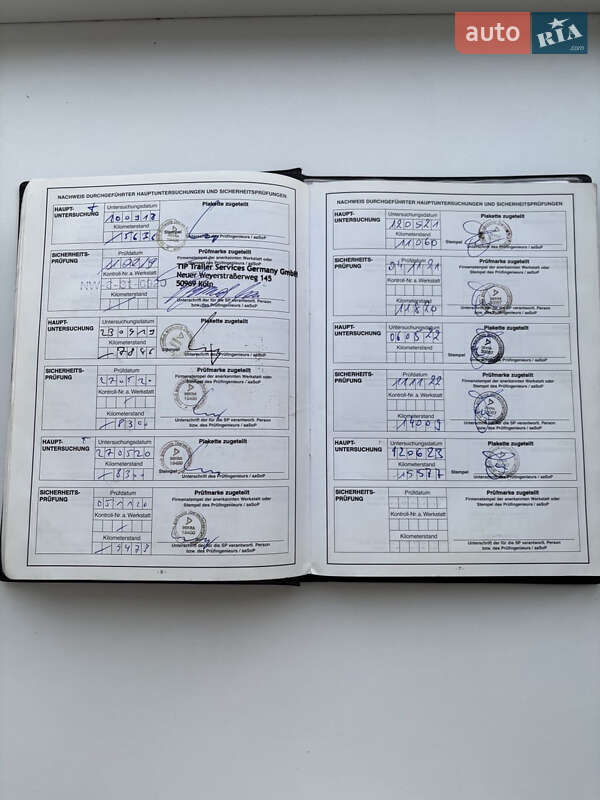 auto RIA .com
NACHWEIS DURCHGEFÜHRTER HAUPTUNTERSUCHUNGEN UND SICHERHEITSPRÜFUNGEN
HAUPT-UNTERSUCHUNG
Untersuchungsdatum
Plakette zugeteilt
Kilometerstand
Unterschrift des Prüfingenieurs / aaSoP
SICHERHEITS-PRÜFUNG
Prüfdatum
Prüfmarke zugeteilt
Kontroll-Nr. a. Werkstatt
TIP Trailer Services Germany GmbH
Neuer Weyerstraßerweg 145
50969 Köln
Kilometerstand
HAUPT-UNTERSUCHUNG
Untersuchungsdatum
Plakette zugeteilt
230919
Kilometerstand
7846
Unterschrift des Prüfingenieurs / aaSoP
SICHERHEITS-PRÜFUNG
Prüfdatum
Prüfmarke zugeteilt
Firmenstempel der anerkannten Werkstatt oder
Stempel des Prüfingenieurs / aaSoP
270520
Kontroll-Nr. a. Werkstatt
Kilometerstand
Unterschrift der für die SP verantwortl. Person
bzw. des Prüfingenieurs / aaSoP
HAUPT-UNTERSUCHUNG
Untersuchungsdatum
Plakette zugeteilt
270520
Kilometerstand
Unterschrift des Prüfingenieurs / aaSoP
SICHERHEITS-PRÜFUNG
Prüfdatum
Prüfmarke zugeteilt
Firmenstempel der anerkannten Werkstatt oder
Stempel des Prüfingenieurs / aaSoP
051120
Kontroll-Nr. a. Werkstatt
Kilometerstand
Unterschrift der für die SP verantwortl. Person
bzw. des Prüfingenieurs / aaSoP
- 6 -
NACHWEIS DURCHGEFÜHRTER HAUPTUNTERSUCHUNGEN UND SICHERHEITSPRÜFUNGEN
HAUPT-UNTERSUCHUNG
Untersuchungsdatum
Plakette zugeteilt
120521
Kilometerstand
11060
Stempel
Unterschrift des Prüfingenieurs / aaSoP
SICHERHEITS-PRÜFUNG
Prüfdatum
Prüfmarke zugeteilt
Firmenstempel der anerkannten Werkstatt oder
Stempel des Prüfingenieurs / aaSoP
Kontroll-Nr. a. Werkstatt
Kilometerstand
11820
Unterschrift der für die SP verantwortl. Person
bzw. des Prüfingenieurs / aaSoP
HAUPT-UNTERSUCHUNG
Untersuchungsdatum
Plakette zugeteilt
Kilometerstand
Stempel
Unterschrift des Prüfingenieurs / aaSoP
SICHERHEITS-PRÜFUNG
Prüfdatum
Prüfmarke zugeteilt
Firmenstempel der anerkannten Werkstatt oder
Stempel des Prüfingenieurs / aaSoP
111122
Kontroll-Nr. a. Werkstatt
Kilometerstand
14009
Unterschrift der für die SP verantwortl. Person
bzw. des Prüfingenieurs / aaSoP
HAUPT-UNTERSUCHUNG
Untersuchungsdatum
Plakette zugeteilt
120623
Kilometerstand
15577
Stempel
Unterschrift des Prüfingenieurs / aaSoP
SICHERHEITS-PRÜFUNG
Prüfdatum
Prüfmarke zugeteilt
Firmenstempel der anerkannten Werkstatt oder
Stempel des Prüfingenieurs / aaSoP
Kontroll-Nr. a. Werkstatt
Kilometerstand
Unterschrift der für die SP verantwortl. Person
bzw. des Prüfingenieurs / aaSoP
- 7 -